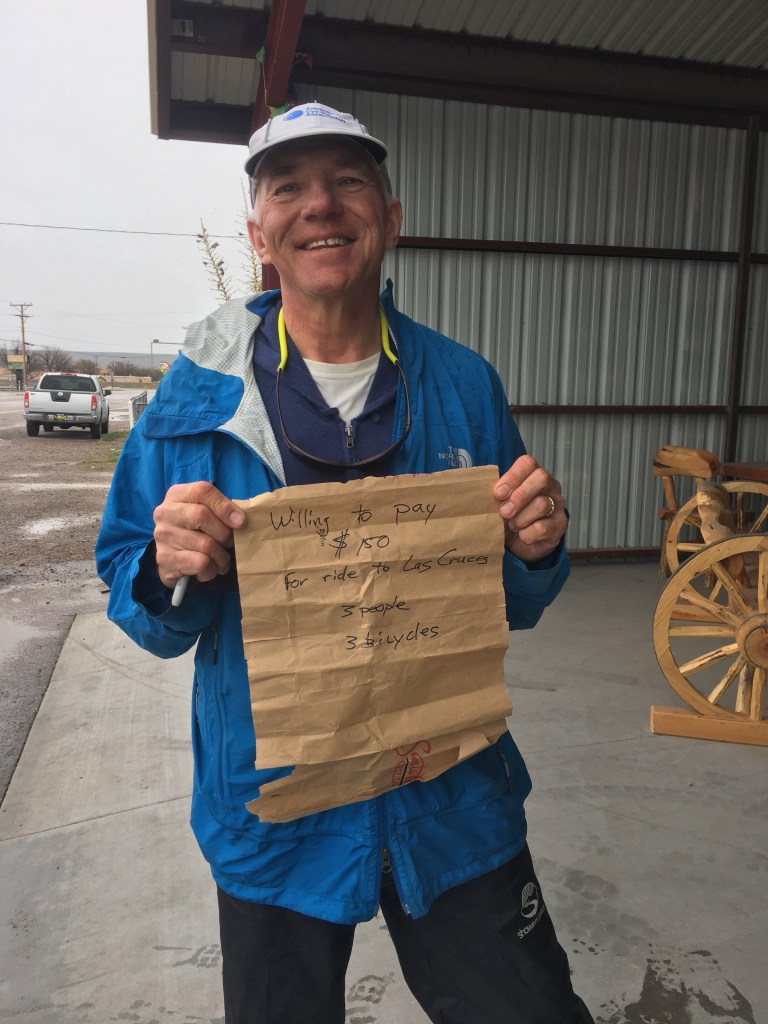 Adventure
Cycling
Association
THE
NORTH
FACE
Willing to pay
$150
for ride to Las Cruces
3 people
3 bicycles